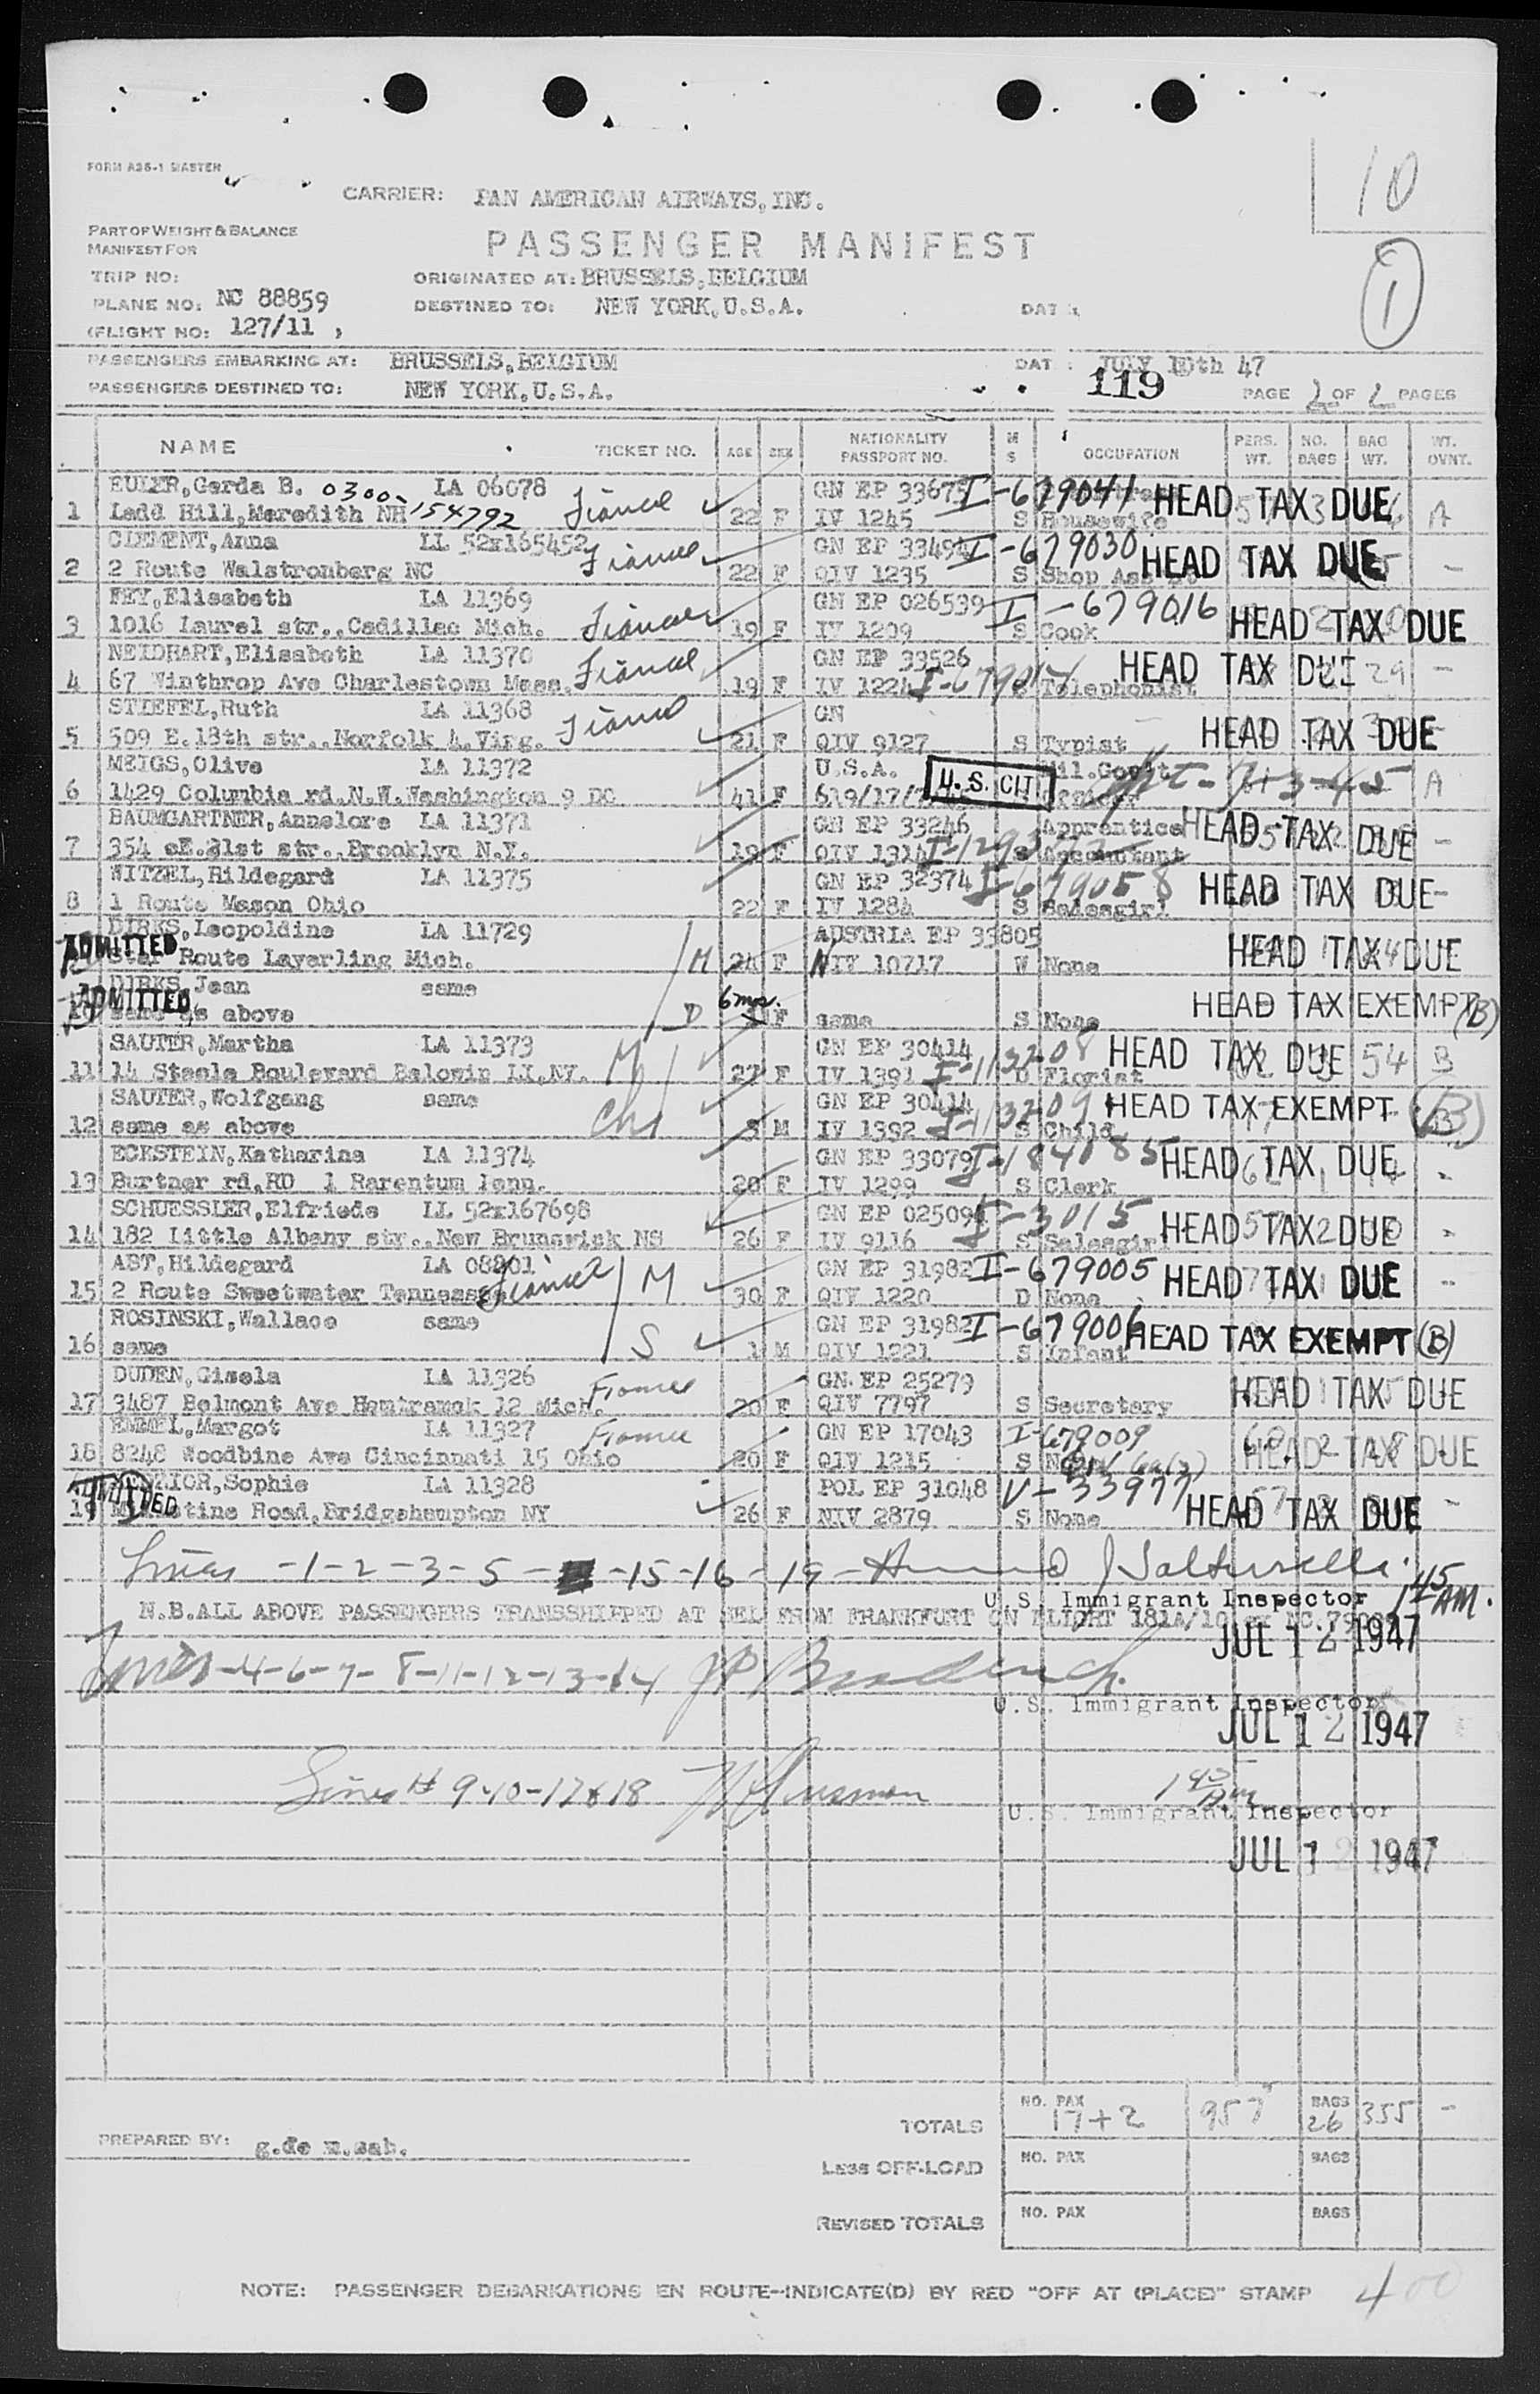 FORM A35-1 MASTER
10
CARRIER: PAN AMERICAN AIRWAYS, INC.
PART OF WEIGHT & BALANCE
MANIFEST FOR
PASSENGER MANIFEST
1
TRIP NO:
ORIGINATED AT: BRUSSELS, BELGIUM
PLANE NO: NC 88859
DESTINED TO: NEW YORK, U.S.A.
(FLIGHT NO: 127/11 )
PASSENGERS EMBARKING AT: BRUSSELS, BELGIUM
JULY 47
PASSENGERS DESTINED TO: NEW YORK, U.S.A.
119
PAGE 2 OF 2 PAGES
NAME TICKET NO. AGE SEX NATIONALITY PASSPORT NO. M S OCCUPATION PERS. WT. NO. BAGS BAG WT. WT. OVNT.
EULER, Gerda B. 0300- LA 06078 GN EP 33675 I-679041 HEAD TAX DUE
1 Ladd Hill, Meredith NH 154792 Fiancee 22 F IV 1245 S Housewife A
CLEMENT, Anna LL 52x165452 Fiancee GN EP I-679030 HEAD TAX DUE
2 2 Route Walstronberg NC 22 F QIV 1235 S Shop -
FEY, Elisabeth LA 11369 GN EP 026539 I-679016
3 1016 Laurel str., Cadillac Mich. Fiancee 19 F IV 1209 S Cook HEAD TAX DUE
NEIDHART, Elisabeth LA 11370 GN EP 33526 HEAD TAX DUE
4 67 Winthrop Ave Charlestown Mass. Fiancee 19 F IV 1224 S Telephonist 29 -
STIEFEL, Ruth LA 11368 Fiancee GN
5 509 E. 18th str., Norfolk 4. Virg. 21 F QIV 9127 S Typist HEAD TAX DUE
MEIGS, Olive LA 11372 U.S.A. U.S. CIT
6 1429 Columbia rd. N.W. Washington 9 DC 41 F A
BAUMGARTNER, Annelore LA 11371 GN EP 33246 Apprentice HEAD TAX DUE
7 354 eE. 31st str., Brooklyn N.Y. 19 F QIV 1314 S Accountant -
WITZEL, Hildegard LA 11375 GN EP 32374 I-679058 HEAD TAX DUE
8 1 Route Mason Ohio 22 F IV 1284 S Salesgirl
DIRKS, Leopoldine LA 11729 AUSTRIA EP 33805
ADMITTED Star Route Layerling Mich. M 24 F NIV 10717 W None HEAD TAX DUE
DIRKS, Jean same 6 mos. HEAD TAX EXEMPT (B)
ADMITTED 10 same as above D F same S None
SAUTER, Martha LA 11373 M GN EP 30414 I-113208 HEAD TAX DUE 54 B
11 14 Steele Boulevard Balowin LI, NY. 27 F IV 1391 D Florist
SAUTER, Wolfgang same GN EP 30414 I-113209 HEAD TAX EXEMPT (B)
12 same as above 5 M IV 1392 S Child
ECKSTEIN, Katharina LA 11374 GN EP 33079 HEAD TAX DUE
13 Burtner rd, RD 1 Rarentum Penn. 20 F IV 1299 S Clerk
SCHUESSLER, Elfriede LL 52x167698 GN EP 02509 HEAD TAX DUE
14 182 Little Albany str., New Brunswick NS 26 F IV 9116 S Salesgirl
AST, Hildegard LA 08201 GN EP 31982 I-679005 HEAD TAX DUE
15 2 Route Sweetwater Tennessee Fiancee M 30 F QIV 1220 D None
ROSINSKI, Wallace same GN EP 31982 I-679006 HEAD TAX EXEMPT (B)
16 same S 1 M QIV 1221 S Infant
DUDEN, Gisela LA 11326 Fiancee GN. EP 25279 HEAD TAX DUE
17 3487 Belmont Ave Hamtramck 12 Mich. 20 F QIV 7797 S Secretary
EMMEL, Margot LA 11327 Fiancee GN EP 17043 I-679009 HEAD TAX DUE
18 8248 Woodbine Ave Cincinnati 15 Ohio 20 F QIV 1215 S
ADMITTED Sophie LA 11328 POL EP 31048 V-33977 HEAD TAX DUE
19 Road, Bridgehampton NY 26 F NIV 2879 S None
Lines -1-2-3-5- -15-16-19-
U.S. Immigrant Inspector 1 45 AM.
N.B. ALL ABOVE PASSENGERS TRANSSHIPPED AT BEL FROM FRANKFURT ON FLIGHT 181A/10
JUL 12 1947
Lines-4-6-7-8-11-12-13-14
U.S. Immigrant Inspector
JUL 12 1947
Lines # 9-10-17&18
U.S. Immigrant Inspector
JUL 12 1947
TOTALS NO. PAX 17+2 957 BAGS 26 355 -
PREPARED BY: g.de m.sab.
LESS OFF-LOAD NO. PAX BAGS
REVISED TOTALS NO. PAX BAGS
NOTE: PASSENGER DEBARKATIONS EN ROUTE--INDICATE(D) BY RED "OFF AT (PLACE)" STAMP
400